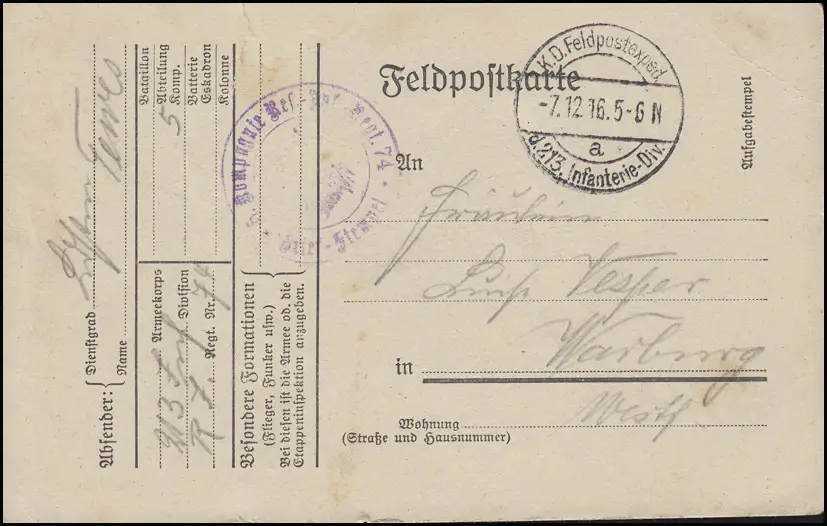 Feldpostkarte
K.D.Feldpostexped.
-7.12.16.5-6 N
a
d.213.Infanterie-Div.
Aufgabestempel
An
Fräulein
Vesper
in Warburg
Westf
Wohnung
(Straße und Hausnummer)
Absender:
Dienstgrad
Name
213 Armeekorps
Division
Regt. Nr. 74
Bataillon
Abteilung
5 Komp.
Batterie
Eskadron
Kolonne
Besondere Formationen
(Flieger, Funker usw.)
Bei diesen ist die Armee od. die
Etappeninspektion anzugeben.
Kompagnie Res.-Inf.-Regt. 74
Brief-Stempel